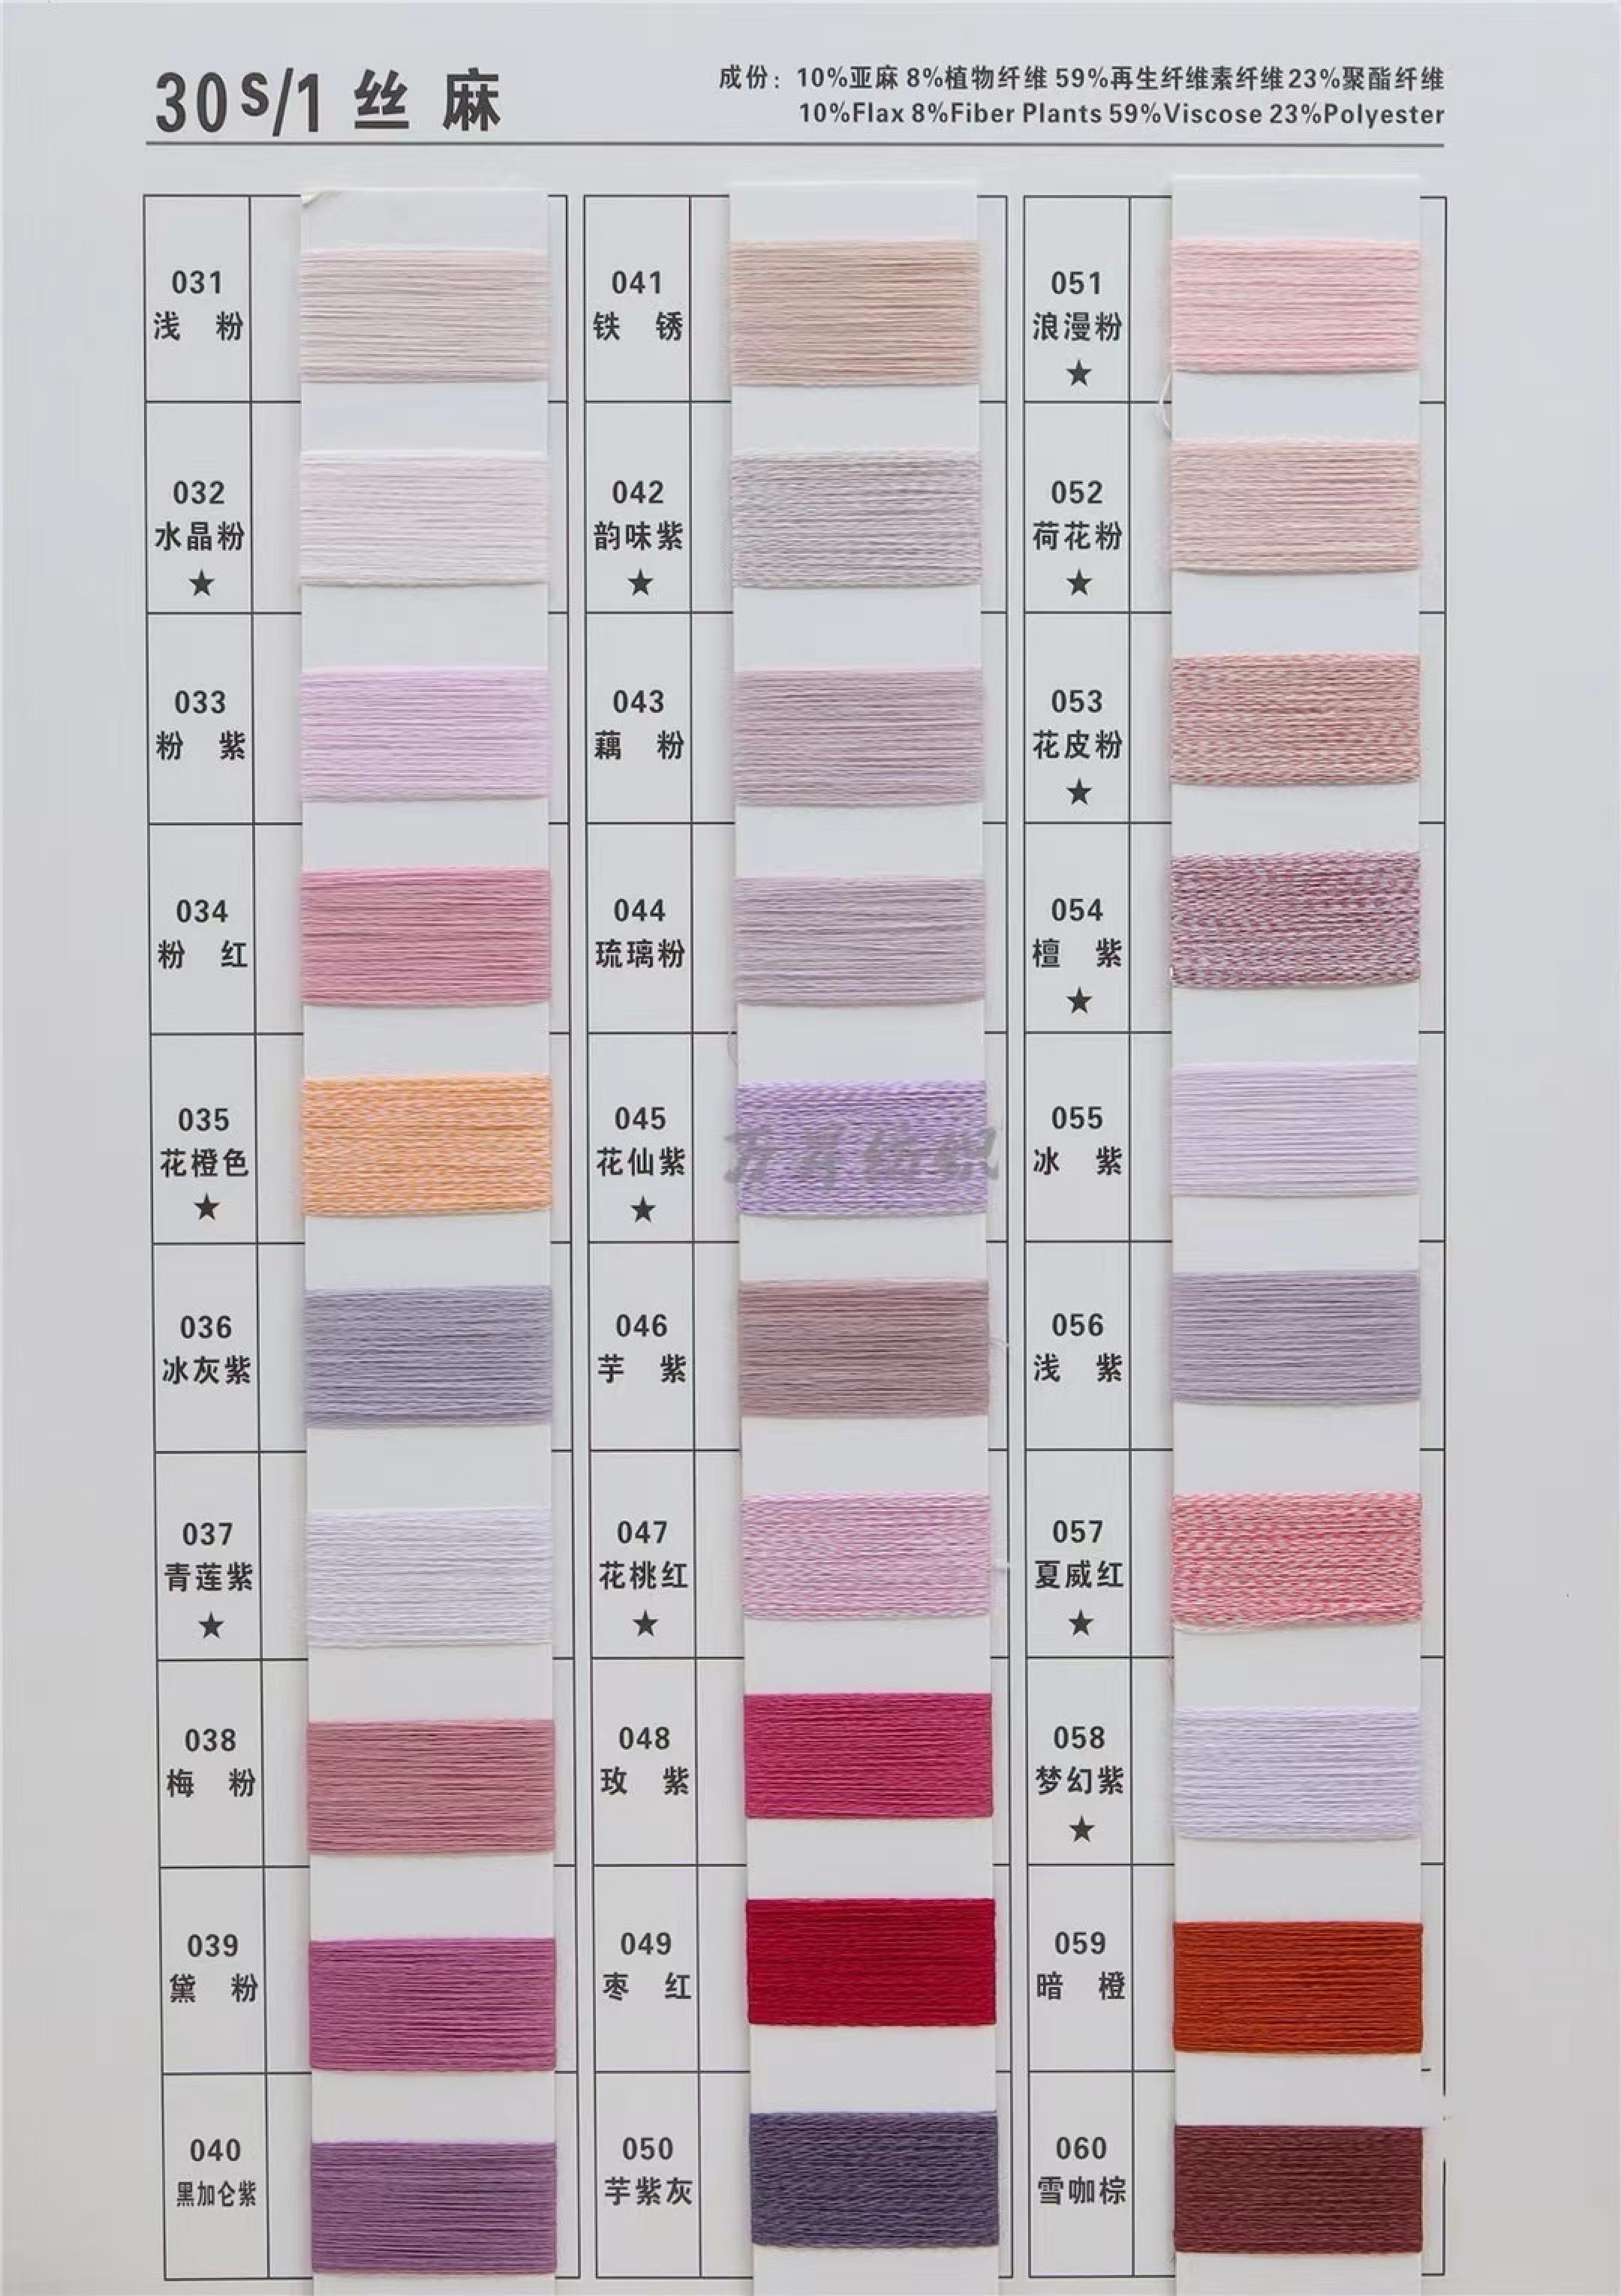 30S/1 丝 麻
成份：10%亚麻 8%植物纤维 59%再生纤维素纤维23%聚酯纤维
10%Flax 8%Fiber Plants 59%Viscose 23%Polyester
031
浅 粉
032
水晶粉
★
033
粉 紫
034
粉 红
035
花橙色
★
036
冰灰紫
037
青莲紫
★
038
梅 粉
039
黛 粉
040
黑加仑紫
041
铁 锈
042
韵味紫
★
043
藕 粉
044
琉璃粉
045
花仙紫
★
046
芋 紫
047
花桃红
★
048
玫 紫
049
枣 红
050
芋紫灰
051
浪漫粉
★
052
荷花粉
★
053
花皮粉
★
054
檀 紫
★
055
冰 紫
056
浅 紫
057
夏威红
★
058
梦幻紫
★
059
暗 橙
060
雪咖棕
纺织